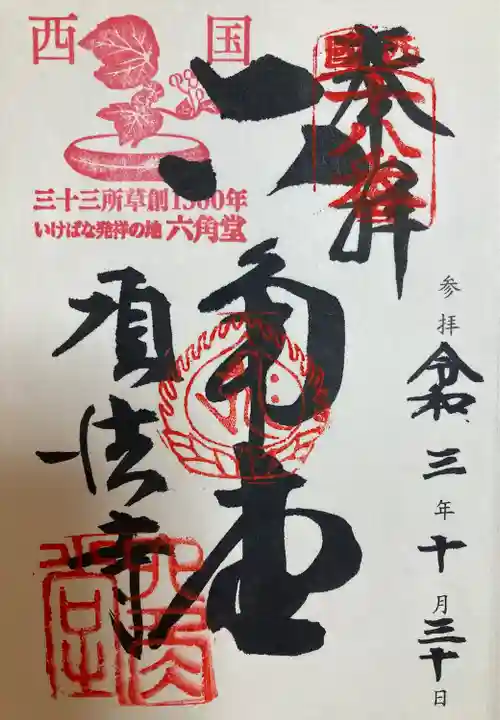 西国
三十三所草創1300年
いけばな発祥の地 六角堂
奉拝
西國十八番
六角堂
頂法寺
六角堂
参拝 令和三年十月三十日